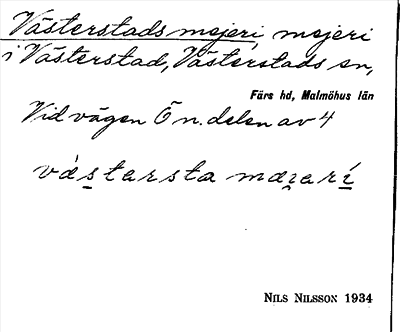 Västerstads mejeri, mejeri
i Västerstad, Västerstads sn,
Färs hd, Malmöhus län
Vid vägen Ö n. delen av 4
væ̀starsta mæjarí
NILS NILSSON 1934